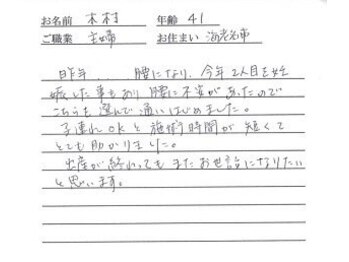 お名前 木村 年齢 41
ご職業 主婦 お住まい 海老名市
昨年、 腰になり、今年2人目を妊
娠した事もあり腰に不安があったので
こちらを選んで通いはじめました。
子連れOKと施術時間が短くて
とても助かりました。
出産が終わってもまたお世話になりたい
と思います。